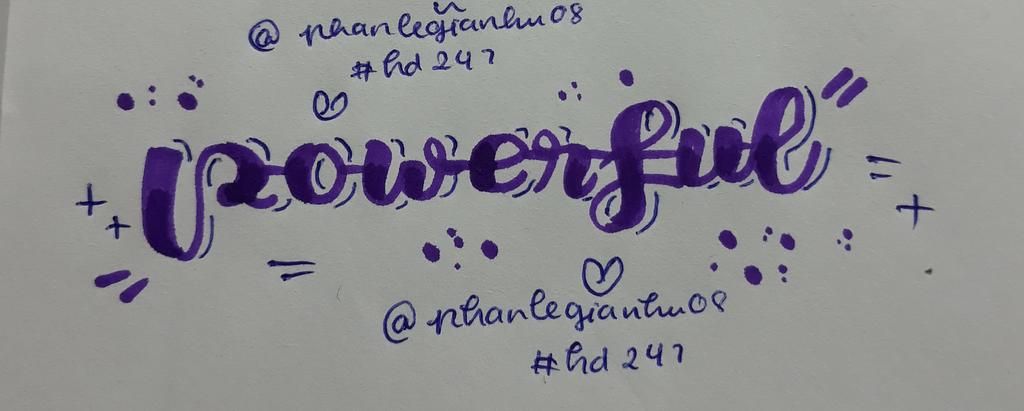 @phanlegianhu08
#hd247
powerful
@phanlegianhu08
#hd247